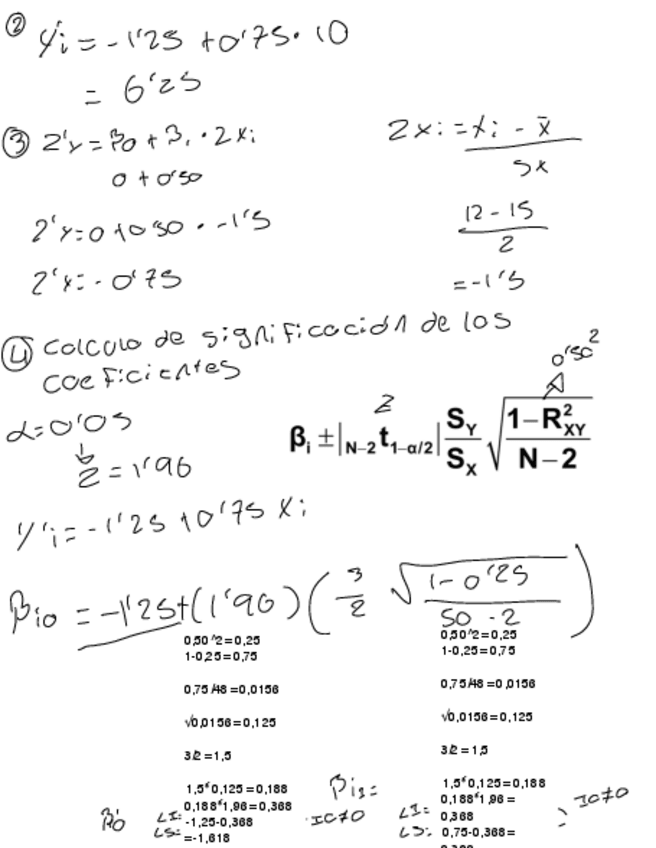 ② Y'i = -1'25 + 0'75 · 10
= 6'25
③ Z'y = β0 + β1 · Zxi
Zxi = xi - x̄ / Sx
0 + 0'50
Z'y = 0 + 0'50 · -1'5
12 - 15 / 2
Z'y = -0'75
= -1'5
④ Calculo de significación de los
coeficientes
0'50²
α=0'05
Z
βi ± |N−2 t1−α/2| SY/SX √(1−R²XY / N−2)
Z = 1'96
Y'i = -1'25 + 0'75 Xi
βi0 = -1'25 ± (1'96) (3/2 √(1 - 0'25 / 50 - 2))
0,50^2=0,25
1-0,25=0,75
0,75/48=0,0156
√0,0156=0,125
3/2=1,5
1,5*0,125=0,188
0,188*1,96=0,368
β0
LI:
-1,25-0,368
LS:
=-1,618
IC≠0
0,50^2=0,25
1-0,25=0,75
0,75/48=0,0156
√0,0156=0,125
3/2=1,5
βi1=
1,5*0,125=0,188
0,188*1,96=
LI:
0,368
LS:
0,75-0,368=
IC≠0